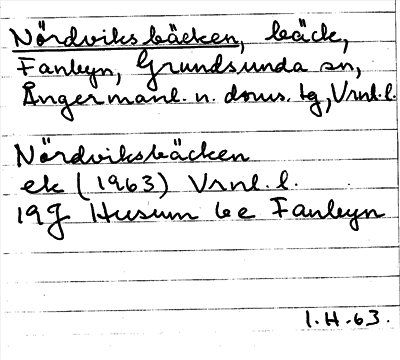 Nördviksbäcken, bäck,
Fanbyn, Grundsunda sn,
Ångermanl. n. doms. tg, Vrnl. l.
Nördviksbäcken
ek (1963) Vrnl. l.
19g Husum be Fanbyn
I.H-63.